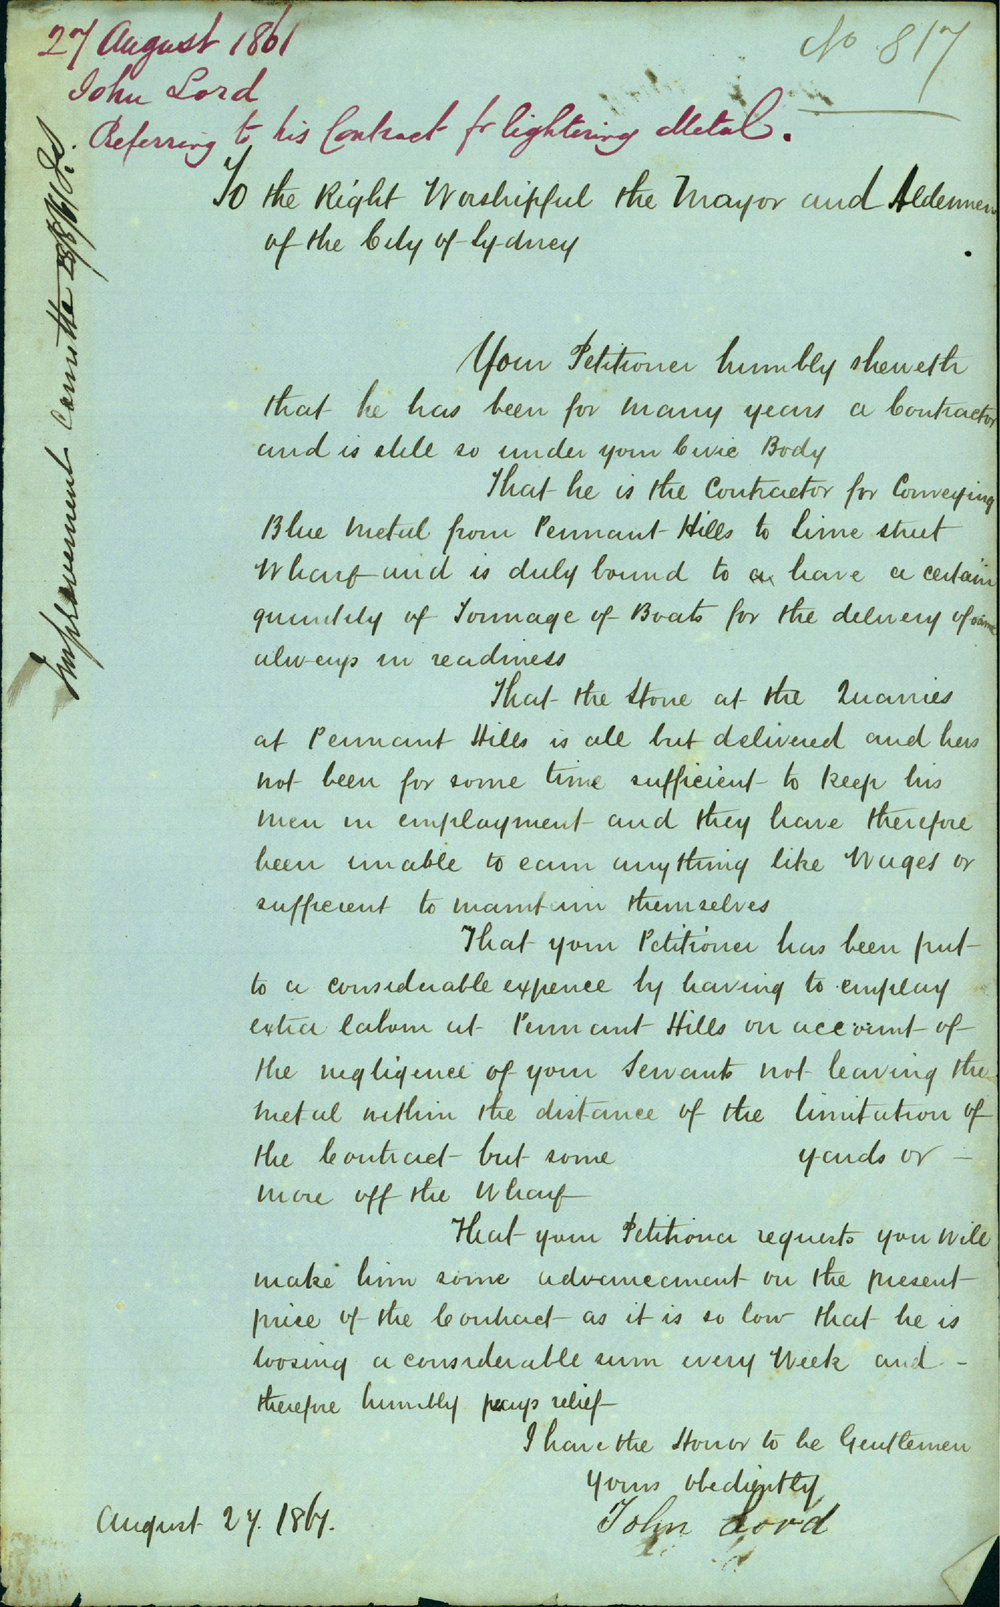 27 August 1861
No 817
John Lord
Referring to his Contract for lightering Metal.
Improvement Committee 28/8/61
To the Right Worshipful the Mayor and Aldermen
of the City of Sydney
Your Petitioner humbly sheweth
that he has been for many years a Contractor
and is still so under your Civic Body
That he is the Contractor for Conveying
Blue Metal from Pennant Hills to Lime street
Wharf and is duly bound to a have a certain
quantity of Tonnage of Boats for the delivery of same
always in readiness
That the Stone at the Quarries
at Pennant Hills is all but delivered and has
not been for some time sufficient to keep his
men in employment and they have therefore
been unable to earn anything like Wages or
sufficient to maintain themselves
That your Petitioner has been put
to a considerable expence by having to employ
extra labour at Pennant Hills on account of
the negligence of your Servants not leaving the
Metal within the distance of the limitation of
the Contract but some yards or
more off the Wharf
That your Petitioner requests you will
make him some advancement on the present
price of the Contract as it is so low that he is
loosing a considerable sum every Week and
therefore humbly prays relief
I have the Honor to be Gentlemen
yours obediently
John Lord
August 27. 1861.